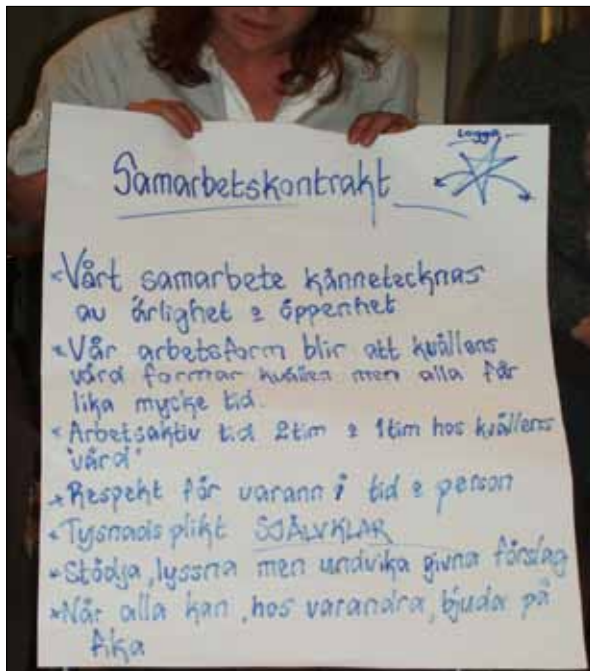 Logga
Samarbetskontrakt
*Vårt samarbete kännetecknas
av ärlighet & öppenhet
*Vår arbetsform blir att kvällens
värd formar kvällen men alla får
lika mycket tid.
*Arbetsaktiv tid 2tim & 1tim hos kvällens
"värd"
*Respekt för varann i tid & person
*Tysnadsplikt SJÄLVKLAR
*Stödja, lyssna men undvika givna förslag
*När alla kan, hos varandra, bjuda på
fika